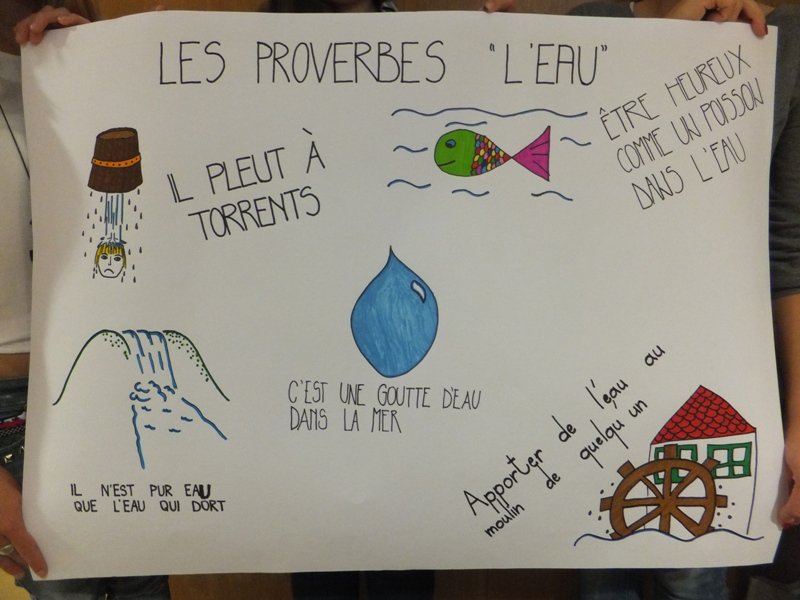 LES PROVERBES "L'EAU"
IL PLEUT À
TORRENTS
ÊTRE HEUREUX
COMME UN POISSON
DANS L'EAU
C'EST UNE GOUTTE D'EAU
DANS LA MER
IL N'EST PUR EAU
QUE L'EAU QUI DORT
Apporter de l'eau au
moulin de quelqu'un